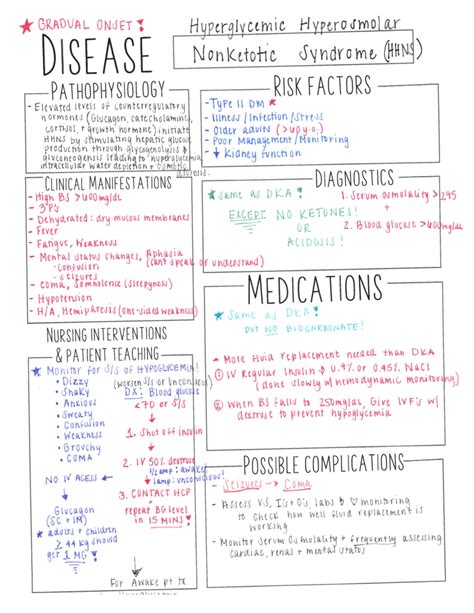 ★ GRADUAL ONSET!
DISEASE
Hyperglycemic Hyperosmolar
Nonketotic Syndrome (HHNS)
PATHOPHYSIOLOGY
- Elevated levels of counterregulatory
hormones (Glucagon, catecholamines,
cortisol, + growth hormone) initiate
HHNS by stimulating hepatic glucose
production through glycogenolysis &
gluconeogenesis leading to hyperglycemia,
intracellular water depletion + osmotic
diuresis.
RISK FACTORS
- Type II DM ★
- Illness / Infection / Stress
- Older adults (> up y.o.)
- Poor Management / Monitoring
- ↓ Kidney Function
CLINICAL MANIFESTATIONS
- High BS > 600 mg/dL
- 3 P's
- Dehydrated: dry mucous membranes
- Fever
- Fatigue, Weakness
- Mental status changes, Aphasia
(can't speak or understand)
- Confusion
- Seizures
- Coma, Somnolence (sleepyness)
- Hypotension
- H/A, Hemiparesis (one-sided weakness)
DIAGNOSTICS
★ Same as DKA!
EXCEPT NO KETONES!
OR
ACIDOSIS!
1. Serum Osmolality > 295
+
2. Blood glucose > 600 mg/dL
MEDICATIONS
★ Same as DKA!
but NO BIOCARBONATE!
- More fluid replacement needed than DKA
① IV Regular Insulin & 0.9% or 0.45% NaCl
(done slowly w/ hemodynamic monitoring)
② When BS falls to 250mg/dL, Give IVF's w/
dextrose to prevent hypoglycemia
NURSING INTERVENTIONS
& PATIENT TEACHING
★ Monitor for S/S of HYPOGLYCEMIA!
• Dizzy
• Shaky
• Anxious
• Sweaty
• Confusion
• Weakness
• Grouchy
• COMA
DX: Blood glucose
<70 or S/S
1. Shut off insulin
2. IV 50% dextrose
1/2 amp: awake
1 amp: unconscious!
3. CONTACT HCP
repeat BG level
in 15 MINS!
NO IV ACESS
Glucagon
(SC + IM)
★ adults + children
≥ 44 kg should
get 1 MG!
For Awake pt tx
POSSIBLE COMPLICATIONS
- Seizures → Coma
- Assess VS, I's + O's, labs & ♡ monitoring
to check how well fluid replacement is
working
- Monitor Serum Osmolality + frequently assessing
cardiac, renal + mental status